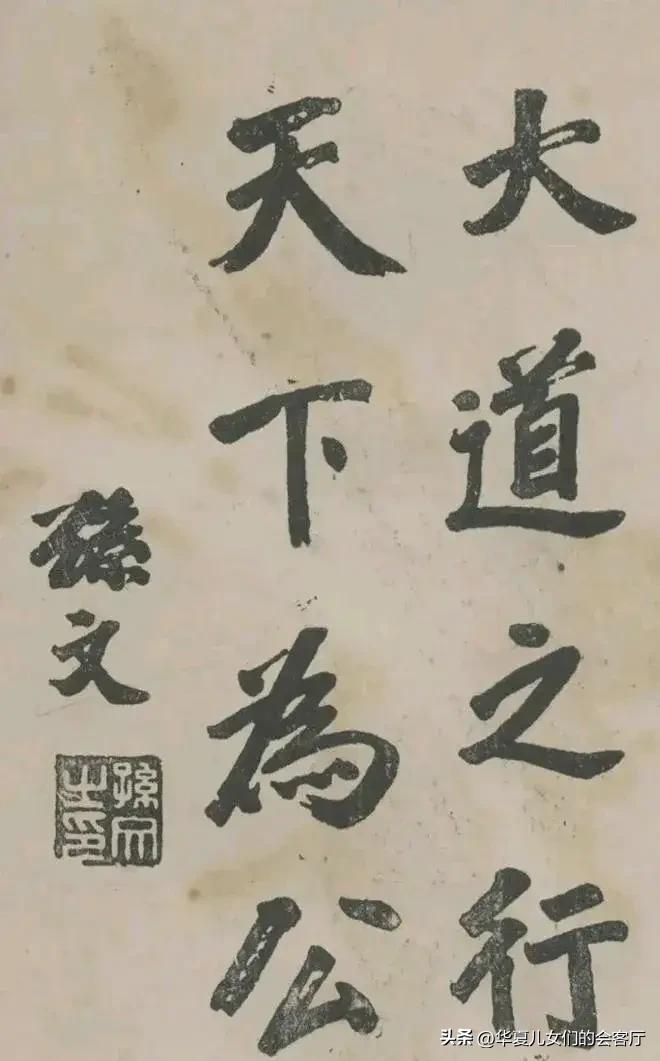 大道之行
天下為公
孫文
孫文之印
头条 @华夏儿女们的会客厅